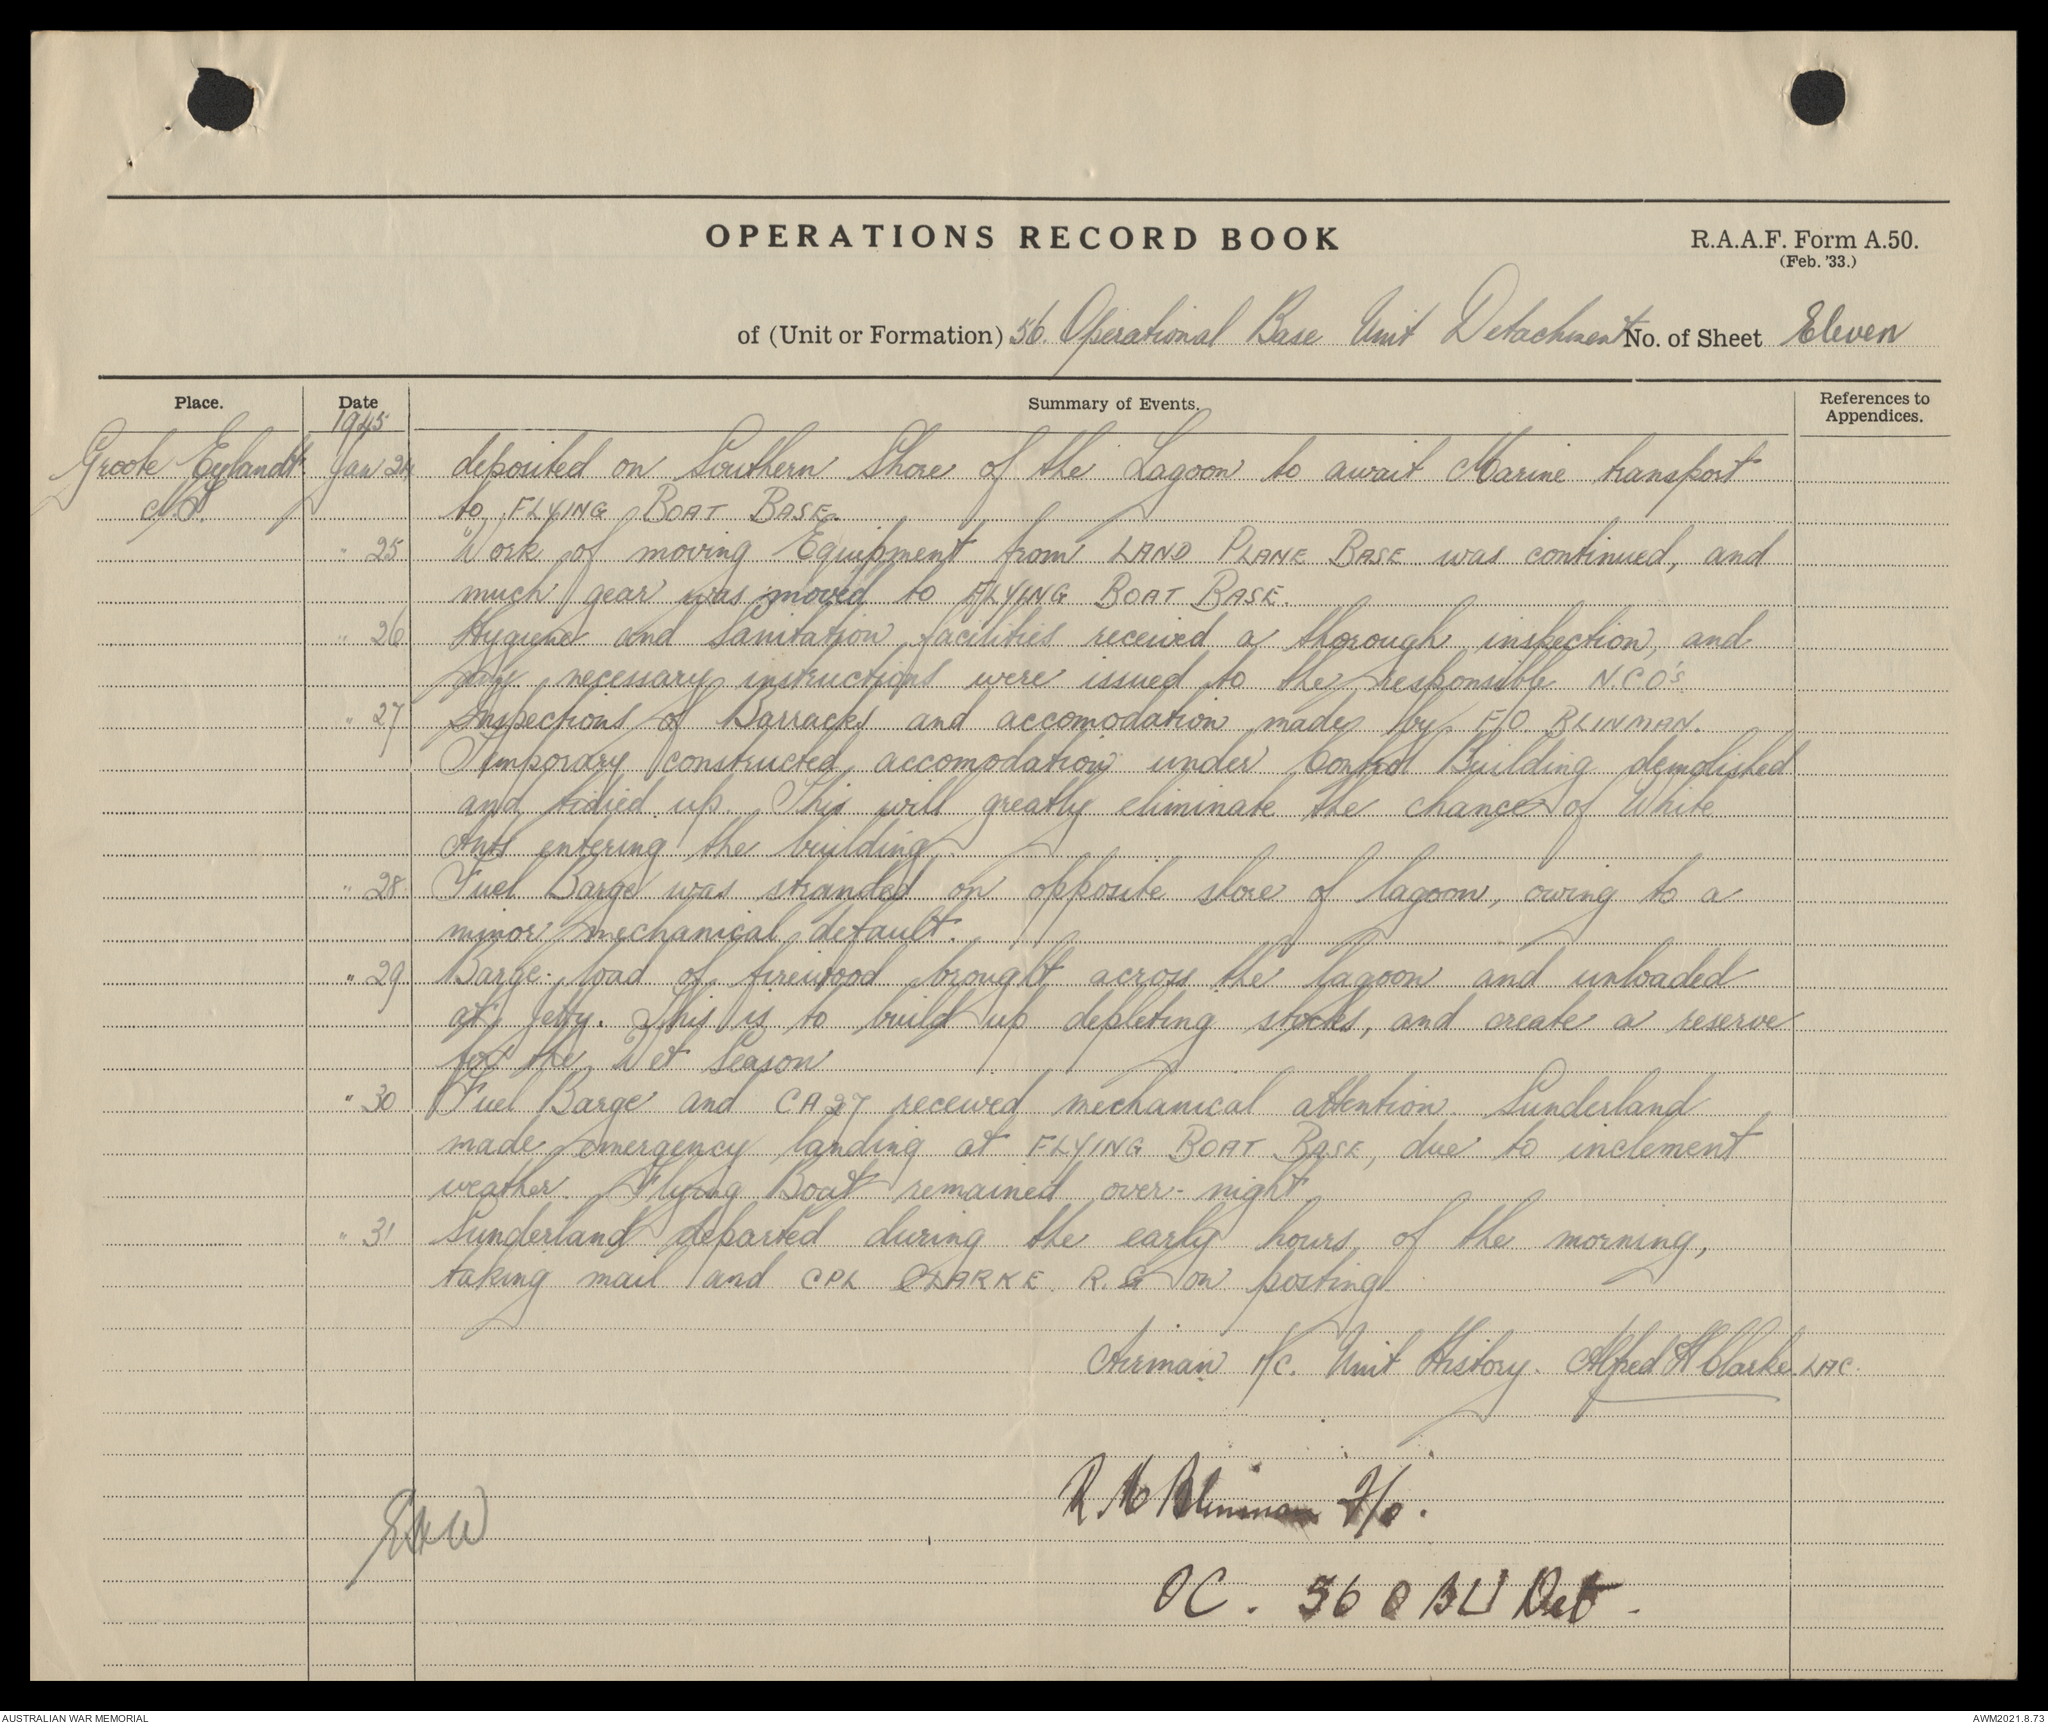 OPERATIONS RECORD BOOK
R.A.A.F. Form A.50.
(Feb. '33.)
of (Unit or Formation) 56. Operational Base Unit Detachment No. of Sheet Eleven
Place. Date Summary of Events. References to Appendices.
1945
Groote Eylandt Jan 24 deposited on Southern Shore of the Lagoon to await Marine transport
N.T. to FLYING BOAT BASE.
" 25 Work of moving Equipment from LAND PLANE BASE was continued, and
much gear was moved to FLYING BOAT BASE.
" 26 Hygiene and Sanitation facilities received a thorough inspection, and
any necessary instructions were issued to the responsible N.C.O's.
" 27 Inspections of Barracks and accomodation made by F/O BLINMAN.
Temporary constructed accomodation under Control Building demolished
and tidied up. This will greatly eliminate the chance of White
Ants entering the building.
" 28 Fuel Barge was stranded on opposite shore of lagoon, owing to a
minor mechanical default.
" 29 Barge-load of firewood brought across the lagoon and unloaded
at Jetty. This is to build up depleting stocks, and create a reserve
for the Wet Season
" 30 Fuel Barge and CA 27 received mechanical attention. Sunderland
made emergency landing at FLYING BOAT BASE, due to inclement
weather. Flying Boat remained over-night
" 31 Sunderland departed during the early hours of the morning,
taking mail and CPL CLARKE. R.G on posting.
Airman I/C. Unit History. Alfred H Clarke. LAC.
Blinman F/O.
OC. 56 OBU Det.
AUSTRALIAN WAR MEMORIAL
AWM2021.8.73